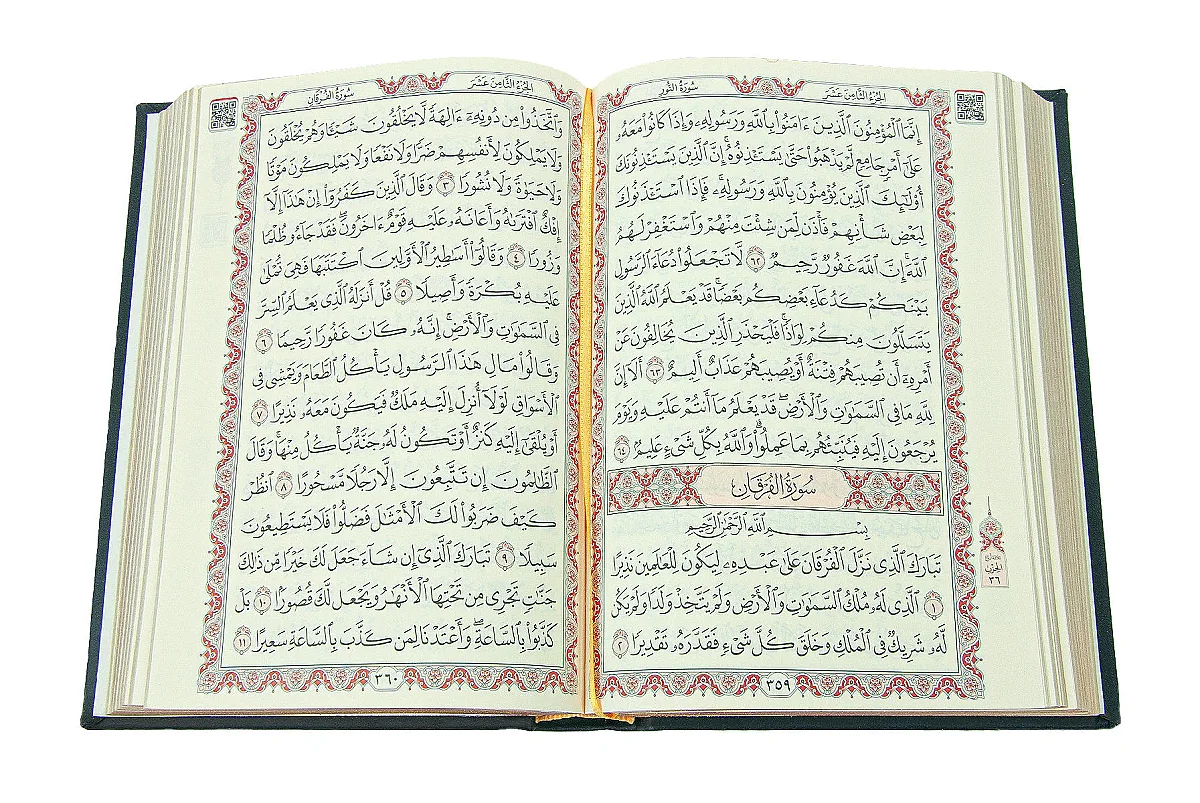 الجزء الثامن عشر
سورة النور
إِنَّمَا ٱلْمُؤْمِنُونَ ٱلَّذِينَ ءَامَنُوا۟ بِٱللَّهِ وَرَسُولِهِۦ وَإِذَا كَانُوا۟ مَعَهُۥ
عَلَىٰٓ أَمْرٍ جَامِعٍ لَّمْ يَذْهَبُوا۟ حَتَّىٰ يَسْتَـْٔذِنُوهُ ۚ إِنَّ ٱلَّذِينَ يَسْتَـْٔذِنُونَكَ
أُو۟لَـٰٓئِكَ ٱلَّذِينَ يُؤْمِنُونَ بِٱللَّهِ وَرَسُولِهِۦ ۚ فَإِذَا ٱسْتَـْٔذَنُوكَ
لِبَعْضِ شَأْنِهِمْ فَأْذَن لِّمَن شِئْتَ مِنْهُمْ وَٱسْتَغْفِرْ لَهُمُ
ٱللَّهَ ۚ إِنَّ ٱللَّهَ غَفُورٌ رَّحِيمٌ ٦٢ لَّا تَجْعَلُوا۟ دُعَآءَ ٱلرَّسُولِ
بَيْنَكُمْ كَدُعَآءِ بَعْضِكُم بَعْضًا ۚ قَدْ يَعْلَمُ ٱللَّهُ ٱلَّذِينَ
يَتَسَلَّلُونَ مِنكُمْ لِوَاذًا ۚ فَلْيَحْذَرِ ٱلَّذِينَ يُخَالِفُونَ عَنْ
أَمْرِهِۦٓ أَن تُصِيبَهُمْ فِتْنَةٌ أَوْ يُصِيبَهُمْ عَذَابٌ أَلِيمٌ ٦٣ أَلَآ إِنَّ
لِلَّهِ مَا فِى ٱلسَّمَـٰوَٰتِ وَٱلْأَرْضِ ۖ قَدْ يَعْلَمُ مَآ أَنتُمْ عَلَيْهِ وَيَوْمَ
يُرْجَعُونَ إِلَيْهِ فَيُنَبِّئُهُم بِمَا عَمِلُوا۟ ۗ وَٱللَّهُ بِكُلِّ شَىْءٍ عَلِيمٌ ٦٤
سورة الفرقان
بِسْمِ ٱللَّهِ ٱلرَّحْمَـٰنِ ٱلرَّحِيمِ
تَبَارَكَ ٱلَّذِى نَزَّلَ ٱلْفُرْقَانَ عَلَىٰ عَبْدِهِۦ لِيَكُونَ لِلْعَـٰلَمِينَ نَذِيرًا
١ ٱلَّذِى لَهُۥ مُلْكُ ٱلسَّمَـٰوَٰتِ وَٱلْأَرْضِ وَلَمْ يَتَّخِذْ وَلَدًا وَلَمْ يَكُن
لَّهُۥ شَرِيكٌ فِى ٱلْمُلْكِ وَخَلَقَ كُلَّ شَىْءٍ فَقَدَّرَهُۥ تَقْدِيرًا ٢
الحزب
٣٦
٣٥٩
الجزء الثامن عشر
سورة الفرقان
وَٱتَّخَذُوا۟ مِن دُونِهِۦٓ ءَالِهَةً لَّا يَخْلُقُونَ شَيْـًٔا وَهُمْ يُخْلَقُونَ
وَلَا يَمْلِكُونَ لِأَنفُسِهِمْ ضَرًّا وَلَا نَفْعًا وَلَا يَمْلِكُونَ مَوْتًا
وَلَا حَيَوٰةً وَلَا نُشُورًا ٣ وَقَالَ ٱلَّذِينَ كَفَرُوٓا۟ إِنْ هَـٰذَآ إِلَّآ
إِفْكٌ ٱفْتَرَىٰهُ وَأَعَانَهُۥ عَلَيْهِ قَوْمٌ ءَاخَرُونَ ۖ فَقَدْ جَآءُو ظُلْمًا
وَزُورًا ٤ وَقَالُوٓا۟ أَسَـٰطِيرُ ٱلْأَوَّلِينَ ٱكْتَتَبَهَا فَهِىَ تُمْلَىٰ
عَلَيْهِ بُكْرَةً وَأَصِيلًا ٥ قُلْ أَنزَلَهُ ٱلَّذِى يَعْلَمُ ٱلسِّرَّ
فِى ٱلسَّمَـٰوَٰتِ وَٱلْأَرْضِ ۚ إِنَّهُۥ كَانَ غَفُورًا رَّحِيمًا ٦
وَقَالُوا۟ مَالِ هَـٰذَا ٱلرَّسُولِ يَأْكُلُ ٱلطَّعَامَ وَيَمْشِى فِى
ٱلْأَسْوَاقِ ۙ لَوْلَآ أُنزِلَ إِلَيْهِ مَلَكٌ فَيَكُونَ مَعَهُۥ نَذِيرًا ٧
أَوْ يُلْقَىٰٓ إِلَيْهِ كَنزٌ أَوْ تَكُونُ لَهُۥ جَنَّةٌ يَأْكُلُ مِنْهَا ۚ وَقَالَ
ٱلظَّـٰلِمُونَ إِن تَتَّبِعُونَ إِلَّا رَجُلًا مَّسْحُورًا ٨ ٱنظُرْ
كَيْفَ ضَرَبُوا۟ لَكَ ٱلْأَمْثَـٰلَ فَضَلُّوا۟ فَلَا يَسْتَطِيعُونَ
سَبِيلًا ٩ تَبَارَكَ ٱلَّذِىٓ إِن شَآءَ جَعَلَ لَكَ خَيْرًا مِّن ذَٰلِكَ
جَنَّـٰتٍ تَجْرِى مِن تَحْتِهَا ٱلْأَنْهَـٰرُ وَيَجْعَل لَّكَ قُصُورًۢا ١٠ بَلْ
كَذَّبُوا۟ بِٱلسَّاعَةِ ۖ وَأَعْتَدْنَا لِمَن كَذَّبَ بِٱلسَّاعَةِ سَعِيرًا ١١
٣٦٠